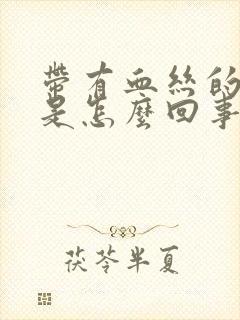 帶有血絲的
是怎麼回事
茯苓半夏